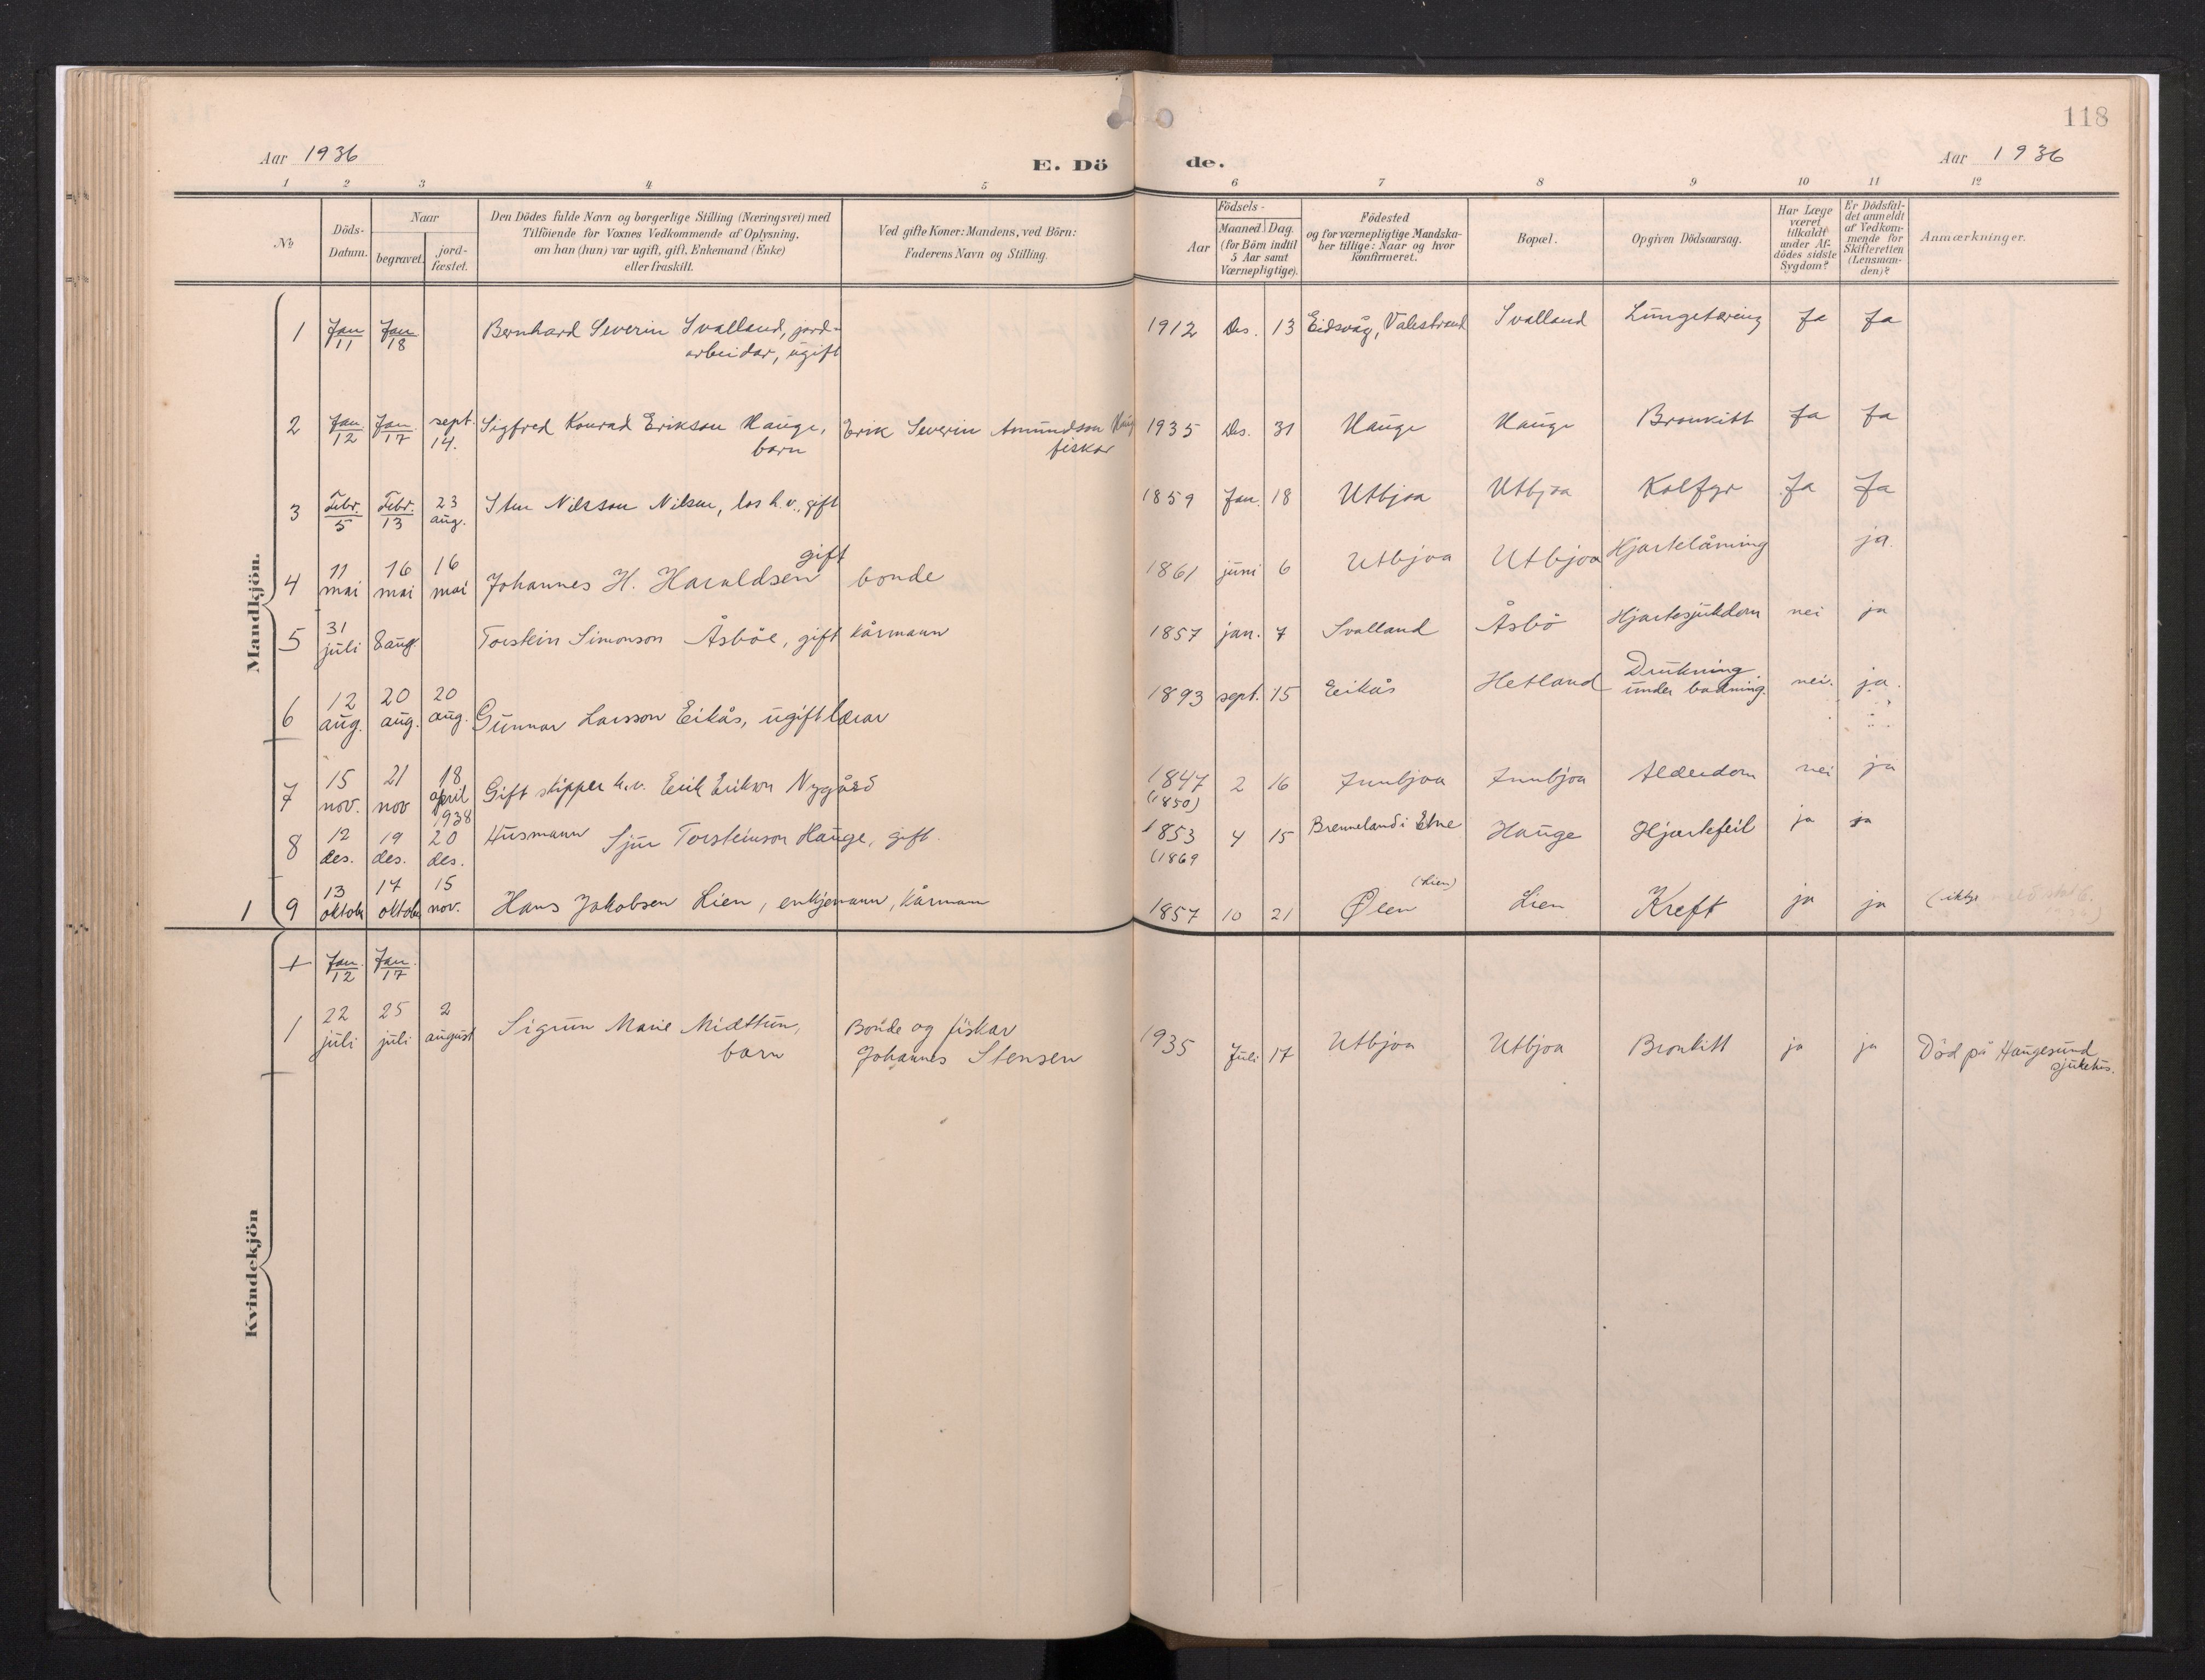 118
Aar 1936
E. Dö
de.
Aar 1936
1 2 3 4 5 6 7 8 9 10 11 12
№
Döds-
Datum.
Naar
begravet.
jord-
fæstet.
Den Dödes fulde Navn og borgerlige Stilling (Næringsvei) med
Tilföiende for Voxnes Vedkommende af Oplysning,
om han (hun) var ugift, gift, Enkemand (Enke)
eller fraskilt.
Ved gifte Koner: Mandens, ved Börn:
Faderens Navn og Stilling.
Födsels-
Aar
Maaned Dag
(for Börn indtil
5 Aar samt
Værnepligtige).
Födested
og for værnepligtige Mandska-
ber tillige: Naar og hvor
konfirmeret.
Bopæl.
Opgiven Dödsaarsag.
Har Læge
været
tilkaldt
under Af-
dödes sidste
Sygdom?
Er Dödsfal-
det anmeldt
af Vedkom-
mende for
Skifteretten
(Lensman-
den)?
Anmærkninger.
Mandkjön.
1 Jan 11 Jan 18 Bernhard Severin Svalland, jord- 1912 Des. 13 Eidsvåg, Valestrand Svalland Lungetæring Ja Ja
arbeidar, ugift
2 Jan. 12 Jan. 17 sept. 14. Sigfred Konrad Erikson Hauge, Erik Severin Amundson 1935 Des. 31 Hauge Hauge Bronkitt Ja Ja
barn fiskar
3 Febr. 5 Febr. 13 23 aug. Sten Nilsson Nilsen, los h.v., gift 1859 Jan. 18 Utbjoa Utbjoa Kolfyr Ja Ja
gift
4 11 mai 16 mai 16 mai Johannes H. Haraldsen bonde 1861 juni 6 Utbjoa Utbjoa Hjartelåming ja.
5 31 juli 8 aug. Torstein Simonson Åsböe, gift kårmann 1857 jan. 7 Svalland Åsbö Hjartesjukdom nei ja
6 12 aug. 20 aug. 20 aug. Gunnar Larsson Eikås, ugift lærar 1893 sept. 15 Eikås Hetland Drukning under badning. nei. ja.
7 15 nov. 21 nov 18 april 1938 Gift skipper h.v. Erik Erikson Nygård 1847 (1850) 2 16 Innbjoa Innbjoa Alderdom nei ja
8 12 des. 19 des. 20 des. Husmann Sjur Torsteinson Hauge, gift. 1853 (1869 4 15 Brenneland i Etne Hauge Hjartefeil ja ja
1 9 13 oktob 17 oktob 15 nov. Hans Jakobsen Lien, enkjemann, kårmann 1857 10 21 (Lien) Ølen Lien Kreft ja ja (ikkje
Kvindekjön
1 Jan. 12 Jan. 17
1 22 juli 25 juli 2 august Sigrun Marie Midttun, Bonde og fiskar 1935 Juli 17 Utbjoa Utbjoa Bronkitt ja ja Död på Haugesund
barn Johannes Stensen sjukehus.